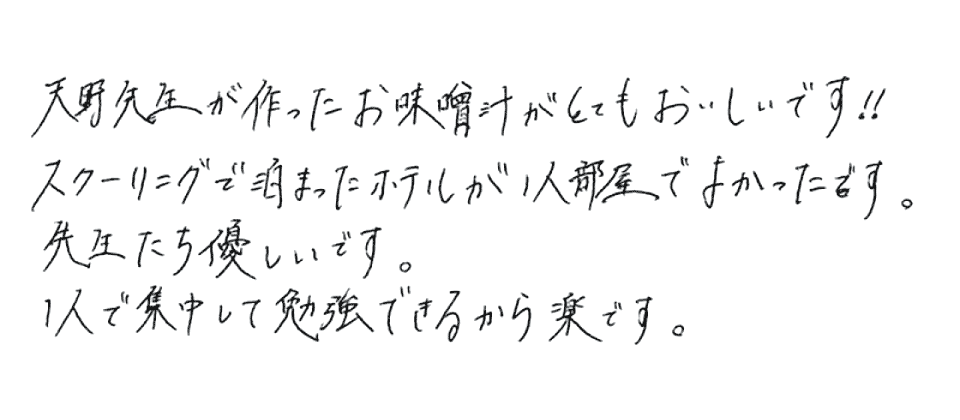 天野先生が作ったお味噌汁がとてもおいしいです!!
スクーリングで泊まったホテルが1人部屋でよかったです。
先生たち優しいです。
1人で集中して勉強できるから楽です。